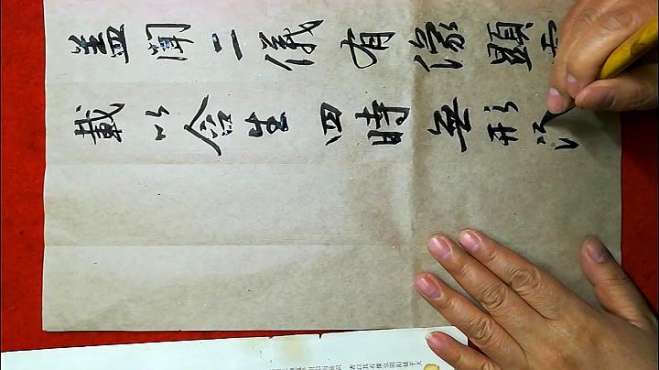 蓋聞二儀有像顯
載以含生四時無形